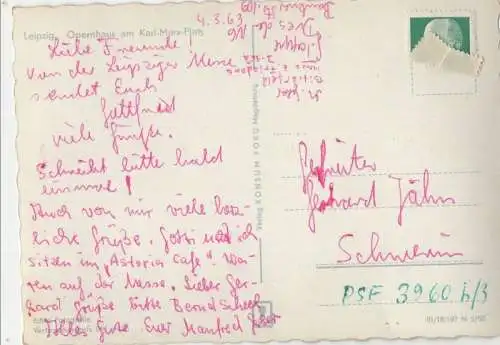 Leipzig, Opernhaus am Karl-Marx-Platz
4.3.63
Liebe Freunde!
Von der Leipziger Messe
sendet Euch
Gottfried
viele Grüße.
Schreibt bitte bald
einmal!
Auch von mir viele herz-
liche Grüße. Gotti und ich
sitzen im "Astoria Cafe". Wa-
ren auf der Messe. Lieber Ger-
hard Grüße bitte Bernd
Alles Gute Euer Manfred
Verlag KONSUM FOKO Magdeburg
Gerhard Jahn
Schwerin
PSF 3960 h/3